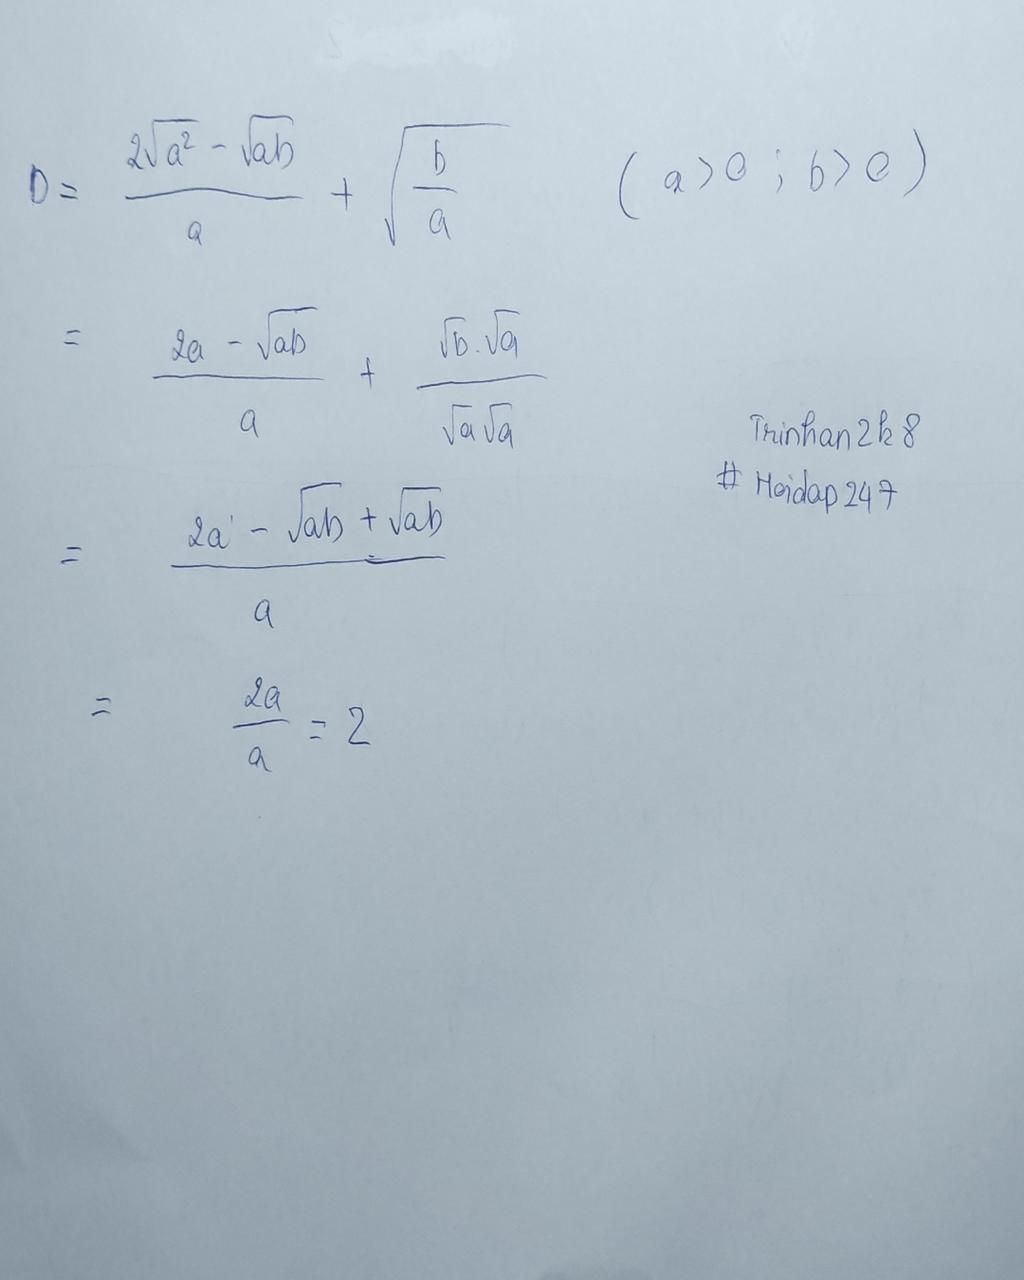 D = \frac{2\sqrt{a^2} - \sqrt{ab}}{a} + \sqrt{\frac{b}{a}} (a > 0 ; b > 0)
= \frac{2a - \sqrt{ab}}{a} + \frac{\sqrt{b} . \sqrt{a}}{\sqrt{a} \sqrt{a}}
Trinhan2k8
# Hoidap247
= \frac{2a - \sqrt{ab} + \sqrt{ab}}{a}
= \frac{2a}{a} = 2